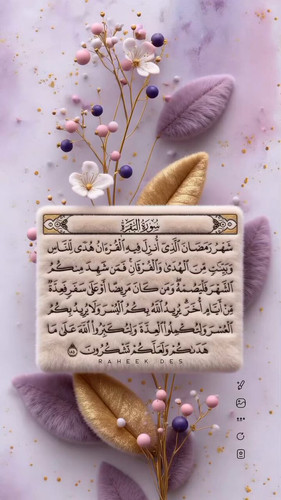 سُورَةُ البَقَرَةِ
شَهْرُ رَمَضَانَ الَّذِي أُنزِلَ فِيهِ الْقُرْآنُ هُدًى لِّلنَّاسِ
وَبَيِّنَاتٍ مِّنَ الْهُدَىٰ وَالْفُرْقَانِ فَمَن شَهِدَ مِنكُمُ
الشَّهْرَ فَلْيَصُمْهُ وَمَن كَانَ مَرِيضًا أَوْ عَلَىٰ سَفَرٍ فَعِدَّةٌ
مِّنْ أَيَّامٍ أُخَرَ يُرِيدُ اللَّهُ بِكُمُ الْيُسْرَ وَلَا يُرِيدُ بِكُمُ
الْعُسْرَ وَلِتُكْمِلُوا الْعِدَّةَ وَلِتُكَبِّرُوا اللَّهَ عَلَىٰ مَا
هَدَاكُمْ وَلَعَلَّكُمْ تَشْكُرُونَ ١٨٥
RAHEEK DES